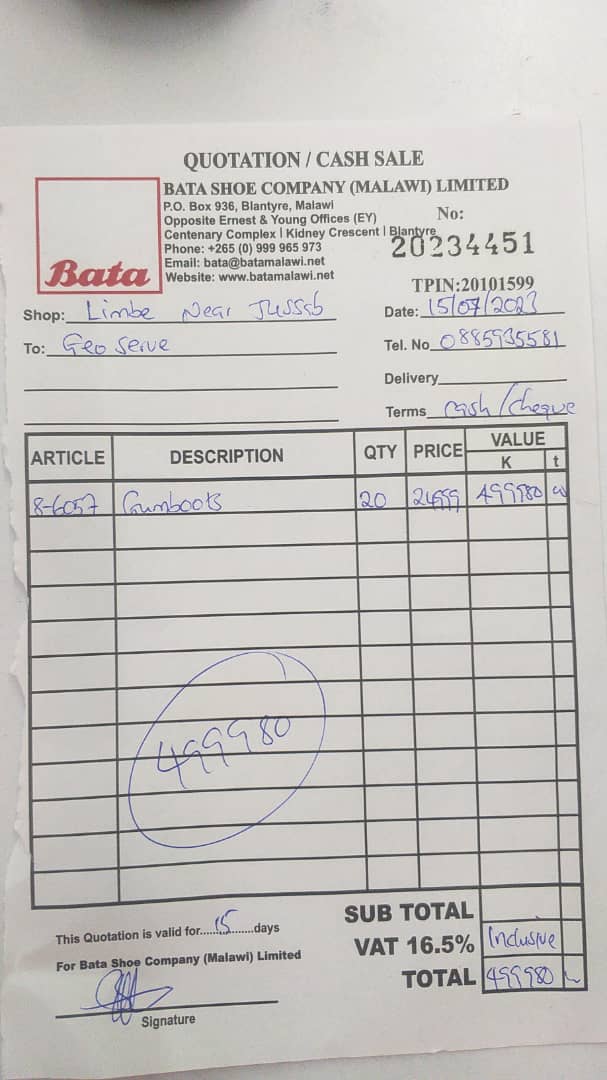 QUOTATION / CASH SALE
BATA SHOE COMPANY (MALAWI) LIMITED
P.O. Box 936, Blantyre, Malawi
Opposite Ernest & Young Offices (EY)
Centenary Complex | Kidney Crescent | Blantyre
Phone: +265 (0) 999 965 973
Email: bata@batamalawi.net
Website: www.batamalawi.net
Bata
No:
20234451
TPIN:20101599
Shop: Limbe Near Jussab
Date: 15/07/2023
To: Geo Serve
Tel. No 0885935581
Delivery
Terms cash/cheque
ARTICLE DESCRIPTION QTY PRICE VALUE
K t
8-6057 Gumboots 20 24999 499980
499980
This Quotation is valid for......15......days
For Bata Shoe Company (Malawi) Limited
Signature
SUB TOTAL
VAT 16.5% Inclusive
TOTAL 499980